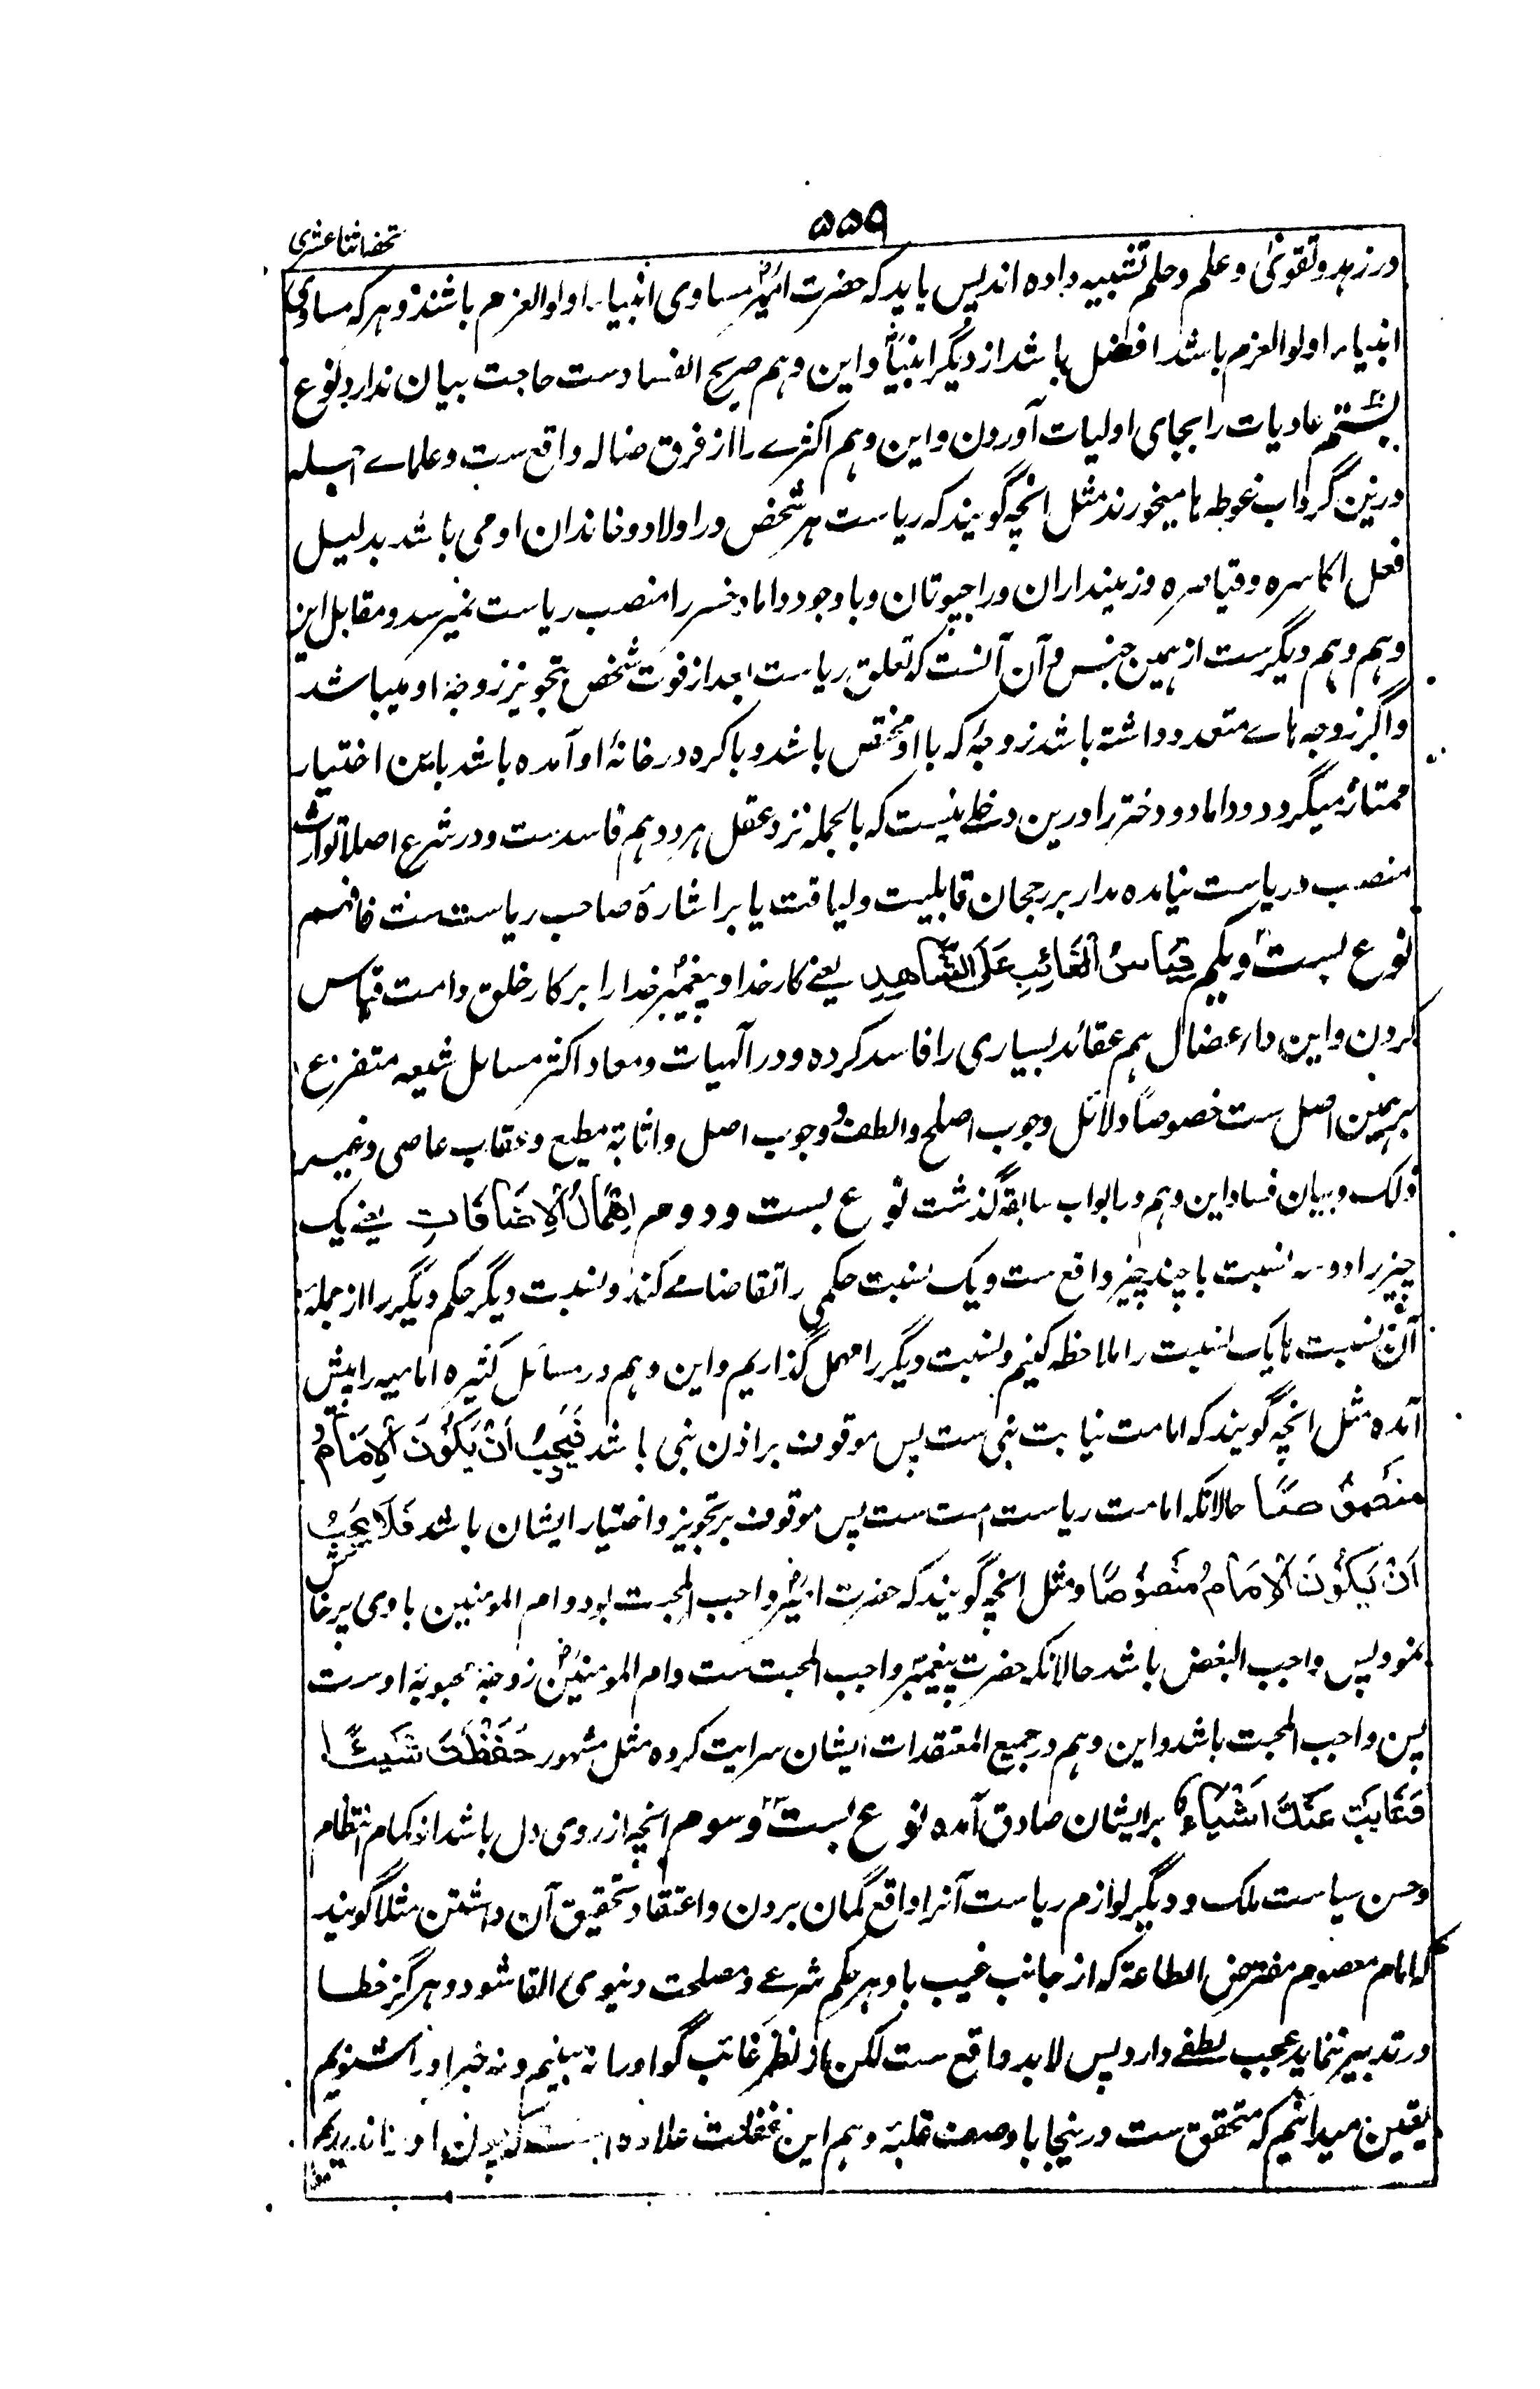 ۵۵۹
تحفه اثنا عشری
در زهد و تقوی و علم و حلم تشبیه داده اند پس باید که حضرت امیرؓ مساوی انبیاء اولوالعزم باشند و هر که مساوی
انبیاء اولوالعزم باشد افضل باشد از دیگر انبیا و این وهم صریح الفسادست حاجت بیان ندارد نوع
بستم عادیات را بجای اولیات آوردن و این وهم اکثرے را از فرق ضاله واقع ست و علماے
درین گرداب غوطه ها میخورند مثل انچه گویند که ریاست هر شخص در اولاد و خاندان او می باشد بدلیل
فعل اکاسره و قیاصره و زمینداران و راجپوتان و با وجود داماد خسر را منصب ریاست نمیرسد و مقابل این
وهم وهم دیگرست از همین جنس و آن آنست که تعلق ریاست بعد از فوت شخص بتجویز زوجهٔ او میباشد
و اگر زوجه هاے متعدد داشته باشد زوجهٔ که با او مختص باشد و باکره در خانهٔ او آمده باشد باین اختیار
ممتاز میگردد و داماد و دختر را درین دخلے نیست که بالجمله نزد عقل هر دو وهم فاسدست و در شرع اصلا توارث
منصب و ریاست نیامده مدار بر رجحان قابلیت و لیاقت یا بر اشارهٔ صاحب ریاست ست فافهم
نوع بست و یکم قِیَاسُ الْغَائِبِ عَلَی الشَّاهِدِ یعنے کار خدا و پیغمبر خدا را بر کار خلق و امت قیاس
کردن و این داء عضال هم عقائد بسیاری را فاسد کرده و در آلهیات و معاد اکثر مسائل شیعه متفرع
بر همین اصل ست خصوصاً دلائل وجوب اصلح و الطف و وجوب اصل و اثابة مطیع و عقاب عاصی و غیر
ذلک و بیان فساد این وهم در ابواب سابقه گذشت نوع بست و دوم اِهْمَالُ الْاِضَافَاتِ یعنے یک
چیز را دو سه نسبت با چند چیز واقع ست و یک نسبت حکمی را تقاضا مے کند و نسبت دیگر حکم دیگر را از جمله
آن نسبت ها یک نسبت را ملاحظه کنیم و نسبت دیگر را مهمل گذاریم و این وهم در مسائل کثیره امامیه را پیش
آمده مثل انچه گویند که امامت نیابت نبی ست پس موقوف بر اذن نبی باشد فَیَجِبُ اَنْ یَکُوْنَ الْاِمَامُ
مَنْصُوْصًا حالانکه امامت ریاست امت ست پس موقوف بر تجویز و اختیار ایشان باشد فَلَا یَجِبُ
اَنْ یَکُوْنَ الْاِمَامُ مَنْصُوْصًا و مثل انچه گویند که حضرت امیرؓ واجب المحبت بود و ام المومنین با وی پرخاش
نمود پس واجب البغض باشد حالانکه حضرت پیغمبر واجب المحبت ست و ام المومنینؓ زوجهٔ محبوبهٔ اوست
پس واجب المحبت باشد و این وهم در جمیع المعتقدات ایشان سرایت کرده مثل مشهور حَفِظْتَ شَیْئًا
فَغَابَتْ عَنْکَ اَشْیَاءُ بر ایشان صادق آمده نوع بست و سوم انچه از روی دل باشد از احکام انتظام
و حسن سیاست ملک و دیگر لوازم ریاست آنرا واقع گمان بردن و اعتقاد تحقیق آن داشتن مثلا گویند
که امام معصوم مفترض الطاعة که از جانب غیب باو هر حکم شرعے و مصلحت دنیوی القا شود و هرگز خطا
در تدبیر ننماید عجب لطفے دارد پس لابد واقع ست لکن از نظر غائب گو او را نه بینیم و نه خبر او را شنویم
یقین میدانیم که متحقق ست درینجا با وصف غلبهٔ وهم این غفلت علاوه